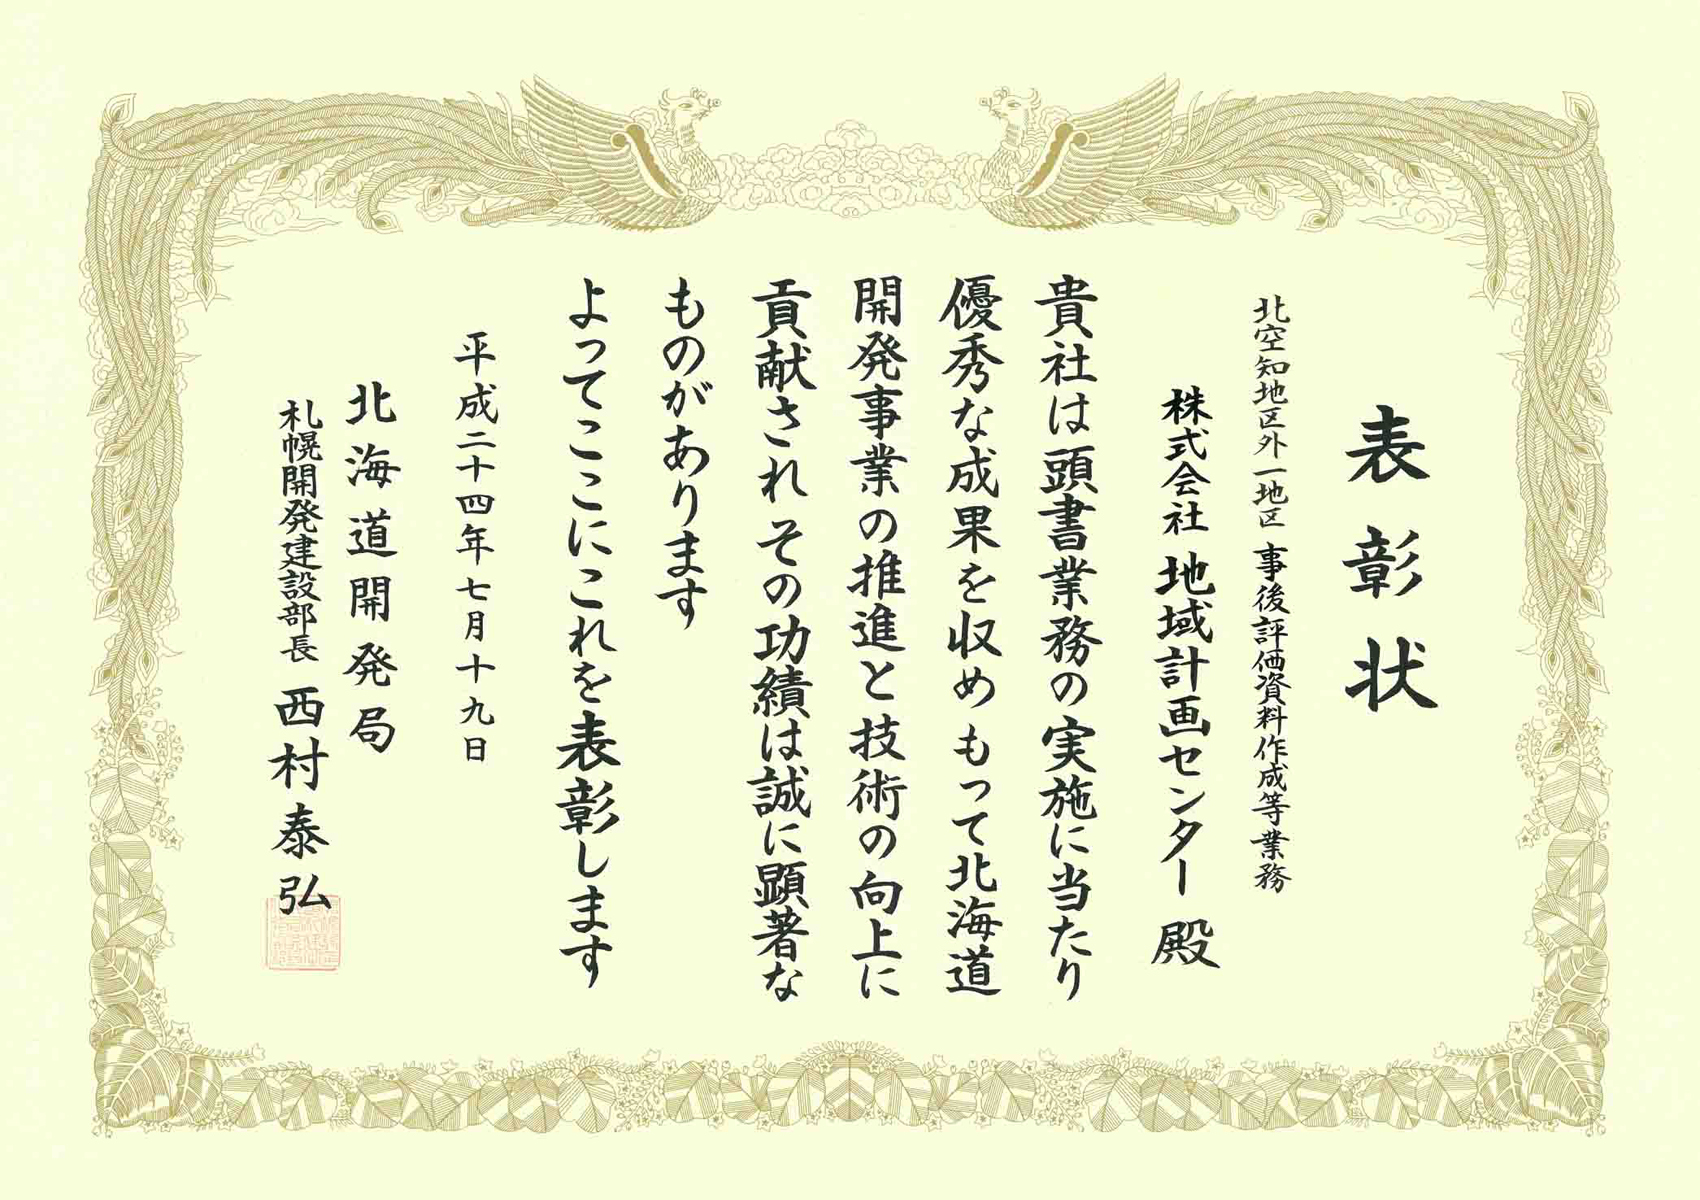 表彰状
北空知地区外一地区 事後評価資料作成等業務
株式会社 地域計画センター 殿
貴社は頭書業務の実施に当たり
優秀な成果を収め もって北海道
開発事業の推進と技術の向上に
貢献され その功績は誠に顕著な
ものがあります
よってここにこれを表彰します
平成二十四年七月十九日
北海道開発局
札幌開発建設部長 西村泰弘